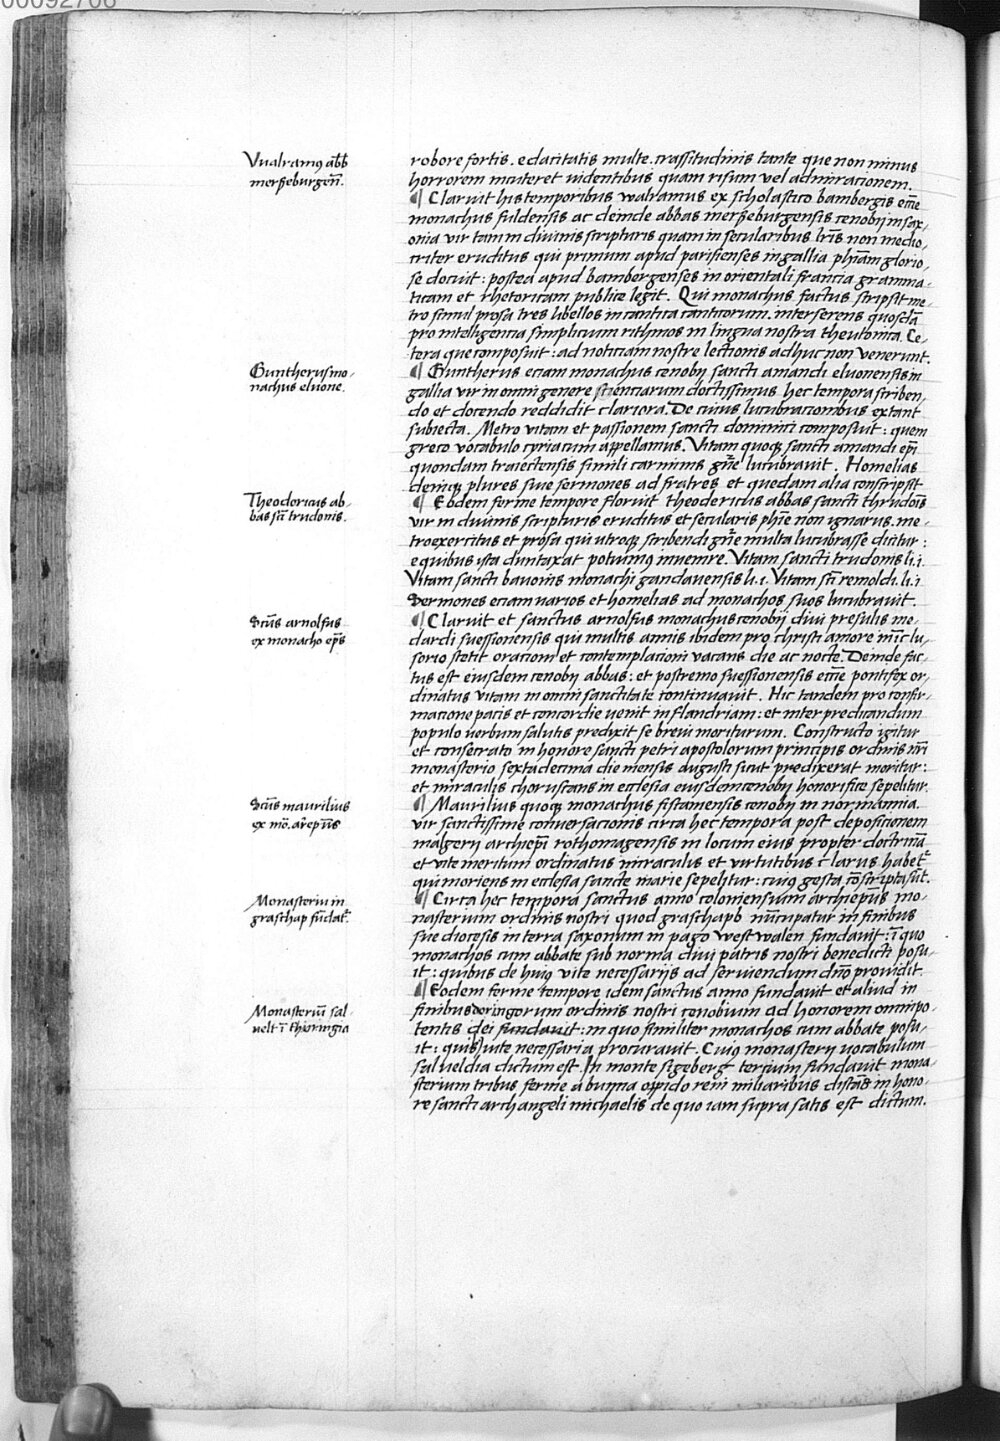 00092706
Vualramꝰ abb
merßeburgeñ.
robore fortis. edacitatis multe. crassitudinis tante que non minus
horrorem incuteret videntibus quam risum vel admiracionem.
¶ Claruit his temporibus walramus ex scholastico bambergis eccīe
monachus fuldensis ac deinde abbas merßeburgensis cenobij in sax,
onia vir tam in divinis scripturis quam in secularibus lr̄is non medio,
criter eruditus qui primum apud parisienses in gallia phīam glorio,
se docuit: postea apud bambergenses in orientali francia gramma,
ticam et rhetoricam publice legit. Qui monachus factus scripsit me
tro simul prosa tres libellos in cantica canticorum. interserens quosdā
pro intelligencia simplicium rithmos in lingua nostra theutonica. Ce,
tera que composuit: ad noticiam nostre lectionis adhuc non venerunt.
Guntherus mo,
nachus elnone.
¶ Guntherus eciam monachus cenobij sancti amandi elnonensis in
gallia vir in omni genere scienciarum doctissimus hec tempora scriben,
do et docendo reddidit clariora. De cuius lucubracionibus extant
subiecta. Metro vitam et passionem sancti dominici composuit: quem
greco vocabulo cyriacum appellamus. Vitam quoqꝫ sancti amandi ep̄i
quondam traiectensis simili carminis gn̄e lucubravit. Homelias
deniqꝫ plures sive sermones ad fratres et quedam alia conscripsit
Theodericus ab,
bas sct̄i trudonis.
¶ Eodem ferme tempore floruit theodericus abbas sancti thrudoīs
vir in divinis scripturis eruditus et secularis phīe non ignarus. me,
tro exercitus et prosa qui utroqꝫ scribendi gn̄e multa lucubrasse dicitur:
e quibus ista duntaxat potuimꝰ invenire. Vitam sancti trudonis li.i.
Vitam sancti bavonis monachi gandavensis li.i. Vitam sct̄i remoldi. li.i
Sermones eciam varios et homelias ad monachos suos lucubravit.
Sct̄us arnolfus
ex monacho ep̄us
¶ Claruit et sanctus arnolfus monachus cenobij divi presulis me,
dardi suessionensis qui multis annis ibidem pro christi amore in īclu,
sorio stetit oracioni et contemplacioni vacans die ac nocte. Deinde fac,
tus est eiusdem cenobij abbas: et postremo suessionensis eccīe pontifex or,
dinatus vitam in omni sanctitate continuavit. Hic tandem pro confir,
macione pacis et concordie venit in flandriam: et inter predicandum
populo verbum salutis predixit se brevi moriturum. Constructo igitur
et consecrato in honore sancti petri apostolorum principis ordinis nr̄i
monasterio sextadecima die mensis augusti sicut predixerat moritur:
et miraculis choruscans in ecclesia eiusdem cenobij honorifice sepelitur.
Sct̄us maurilius
ex mō. ar̄ep̄us
¶ Maurilius quoqꝫ monachus fiscamensis cenobij in normannia.
vir sanctissime conversacionis circa hec tempora post deposicionem
malgerij archiep̄i rothomagensis in locum eius propter doctrinā
et vite meritum ordinatus miraculis et virtutibus clarus habet᷑
qui moriens in ecclesia sancte marie sepelitur: cuiꝰ gesta cōscripta sūt.
Monasteriū in
graschap fūdat᷑
¶ Circa hec tempora sanctus anno coloniensium archiep̄us mo,
nasterium ordinis nostri quod graschaph nūcupatur in finibus
sue diocesis in terra saxonum in pago westwalen fundavit: ī quo
monachos cum abbate sub norma divi patris nostri benedicti posu,
it: quibus de huiꝰ vite necessarijs ad serviendum dn̄o providit.
Monasteriū sal,
velt ī thioringia
¶ Eodem ferme tempore idem sanctus anno fundavit et aliud in
finibus doringorum ordinis nostri cenobium ad honorem omnipo,
tentis dei fundavit: in quo similiter monachos cum abbate posu,
it: quis vite necessaria procuravit. Cuiꝰ monasterij vocabulum
salveldia dictum est. In monte sigeberg tercium fundavit mona,
sterium tribus ferme a bunna oppido reni miliaribus distās in hono,
re sancti archangeli michaelis de quo iam supra satis est dictum.